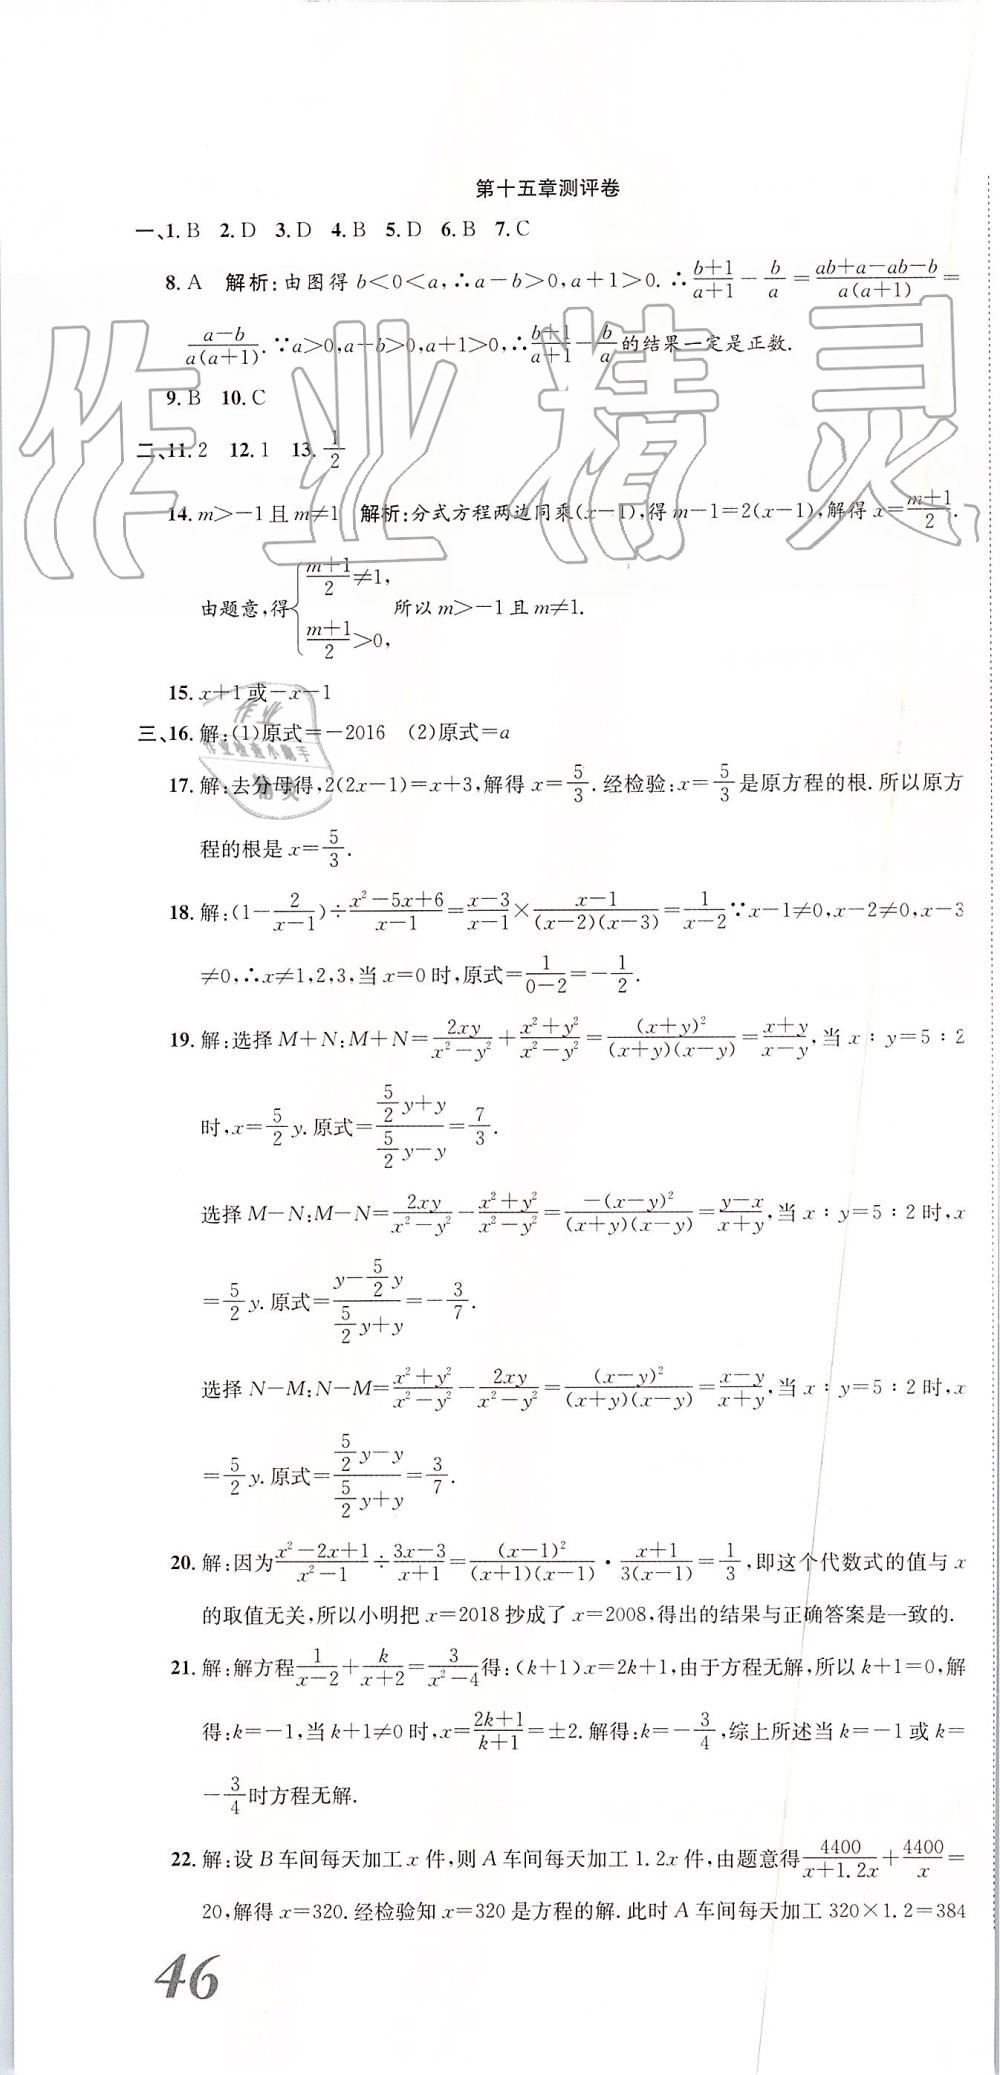 第十五章测评卷
一、1. B 2. D 3. D 4. B 5. D 6. B 7. C
8. A 解析:由图得 b<0<a,∴a-b>0,a+1>0. ∴(b+1)/(a+1)-b/a=(ab+a-ab-b)/(a(a+1))=
(a-b)/(a(a+1)). ∵a>0,a-b>0,a+1>0,∴(b+1)/(a+1)-b/a的结果一定是正数.
9. B 10. C
二、11. 2 12. 1 13. 1/2
14. m>-1且m≠1 解析:分式方程两边同乘(x-1),得m-1=2(x-1),解得x=(m+1)/2.
由题意,得{(m+1)/2≠1, (m+1)/2>0, 所以m>-1且m≠1.
15. x+1或-x-1
三、16. 解:(1)原式=-2016 (2)原式=a
17. 解:去分母得,2(2x-1)=x+3,解得x=5/3. 经检验:x=5/3是原方程的根. 所以原方
程的根是x=5/3.
18. 解:(1-2/(x-1))÷(x²-5x+6)/(x-1)=(x-3)/(x-1)×(x-1)/((x-2)(x-3))=1/(x-2)∵x-1≠0,x-2≠0,x-3
≠0,∴x≠1,2,3,当x=0时,原式=1/(0-2)=-1/2.
19. 解:选择M+N:M+N=2xy/(x²-y²)+(x²+y²)/(x²-y²)=(x+y)²/((x+y)(x-y))=(x+y)/(x-y),当x:y=5:2
时,x=5/2y. 原式=(5/2y+y)/(5/2y-y)=7/3.
选择M-N:M-N=2xy/(x²-y²)-(x²+y²)/(x²-y²)=-(x-y)²/((x+y)(x-y))=(y-x)/(x+y),当x:y=5:2时,x
=5/2y. 原式=(y-5/2y)/(5/2y+y)=-3/7.
选择N-M:N-M=(x²+y²)/(x²-y²)-2xy/(x²-y²)=(x-y)²/((x+y)(x-y))=(x-y)/(x+y),当x:y=5:2时,x
=5/2y. 原式=(5/2y-y)/(5/2y+y)=3/7.
20. 解:因为(x²-2x+1)/(x²-1)÷(3x-3)/(x+1)=(x-1)²/((x+1)(x-1))·(x+1)/(3(x-1))=1/3,即这个代数式的值与x
的取值无关,所以小明把x=2018抄成了x=2008,得出的结果与正确答案是一致的.
21. 解:解方程1/(x-2)+k/(x+2)=3/(x²-4)得:(k+1)x=2k+1,由于方程无解,所以k+1=0,解
得:k=-1,当k+1≠0时,x=(2k+1)/(k+1)=±2. 解得:k=-3/4,综上所述当k=-1或k=
-3/4时方程无解.
22. 解:设B车间每天加工x件,则A车间每天加工1.2x件,由题意得4400/(x+1.2x)+4400/x=
20,解得x=320. 经检验知x=320是方程的解. 此时A车间每天加工320×1.2=384
46
作业精灵
作业
作业检查小助手
精灵